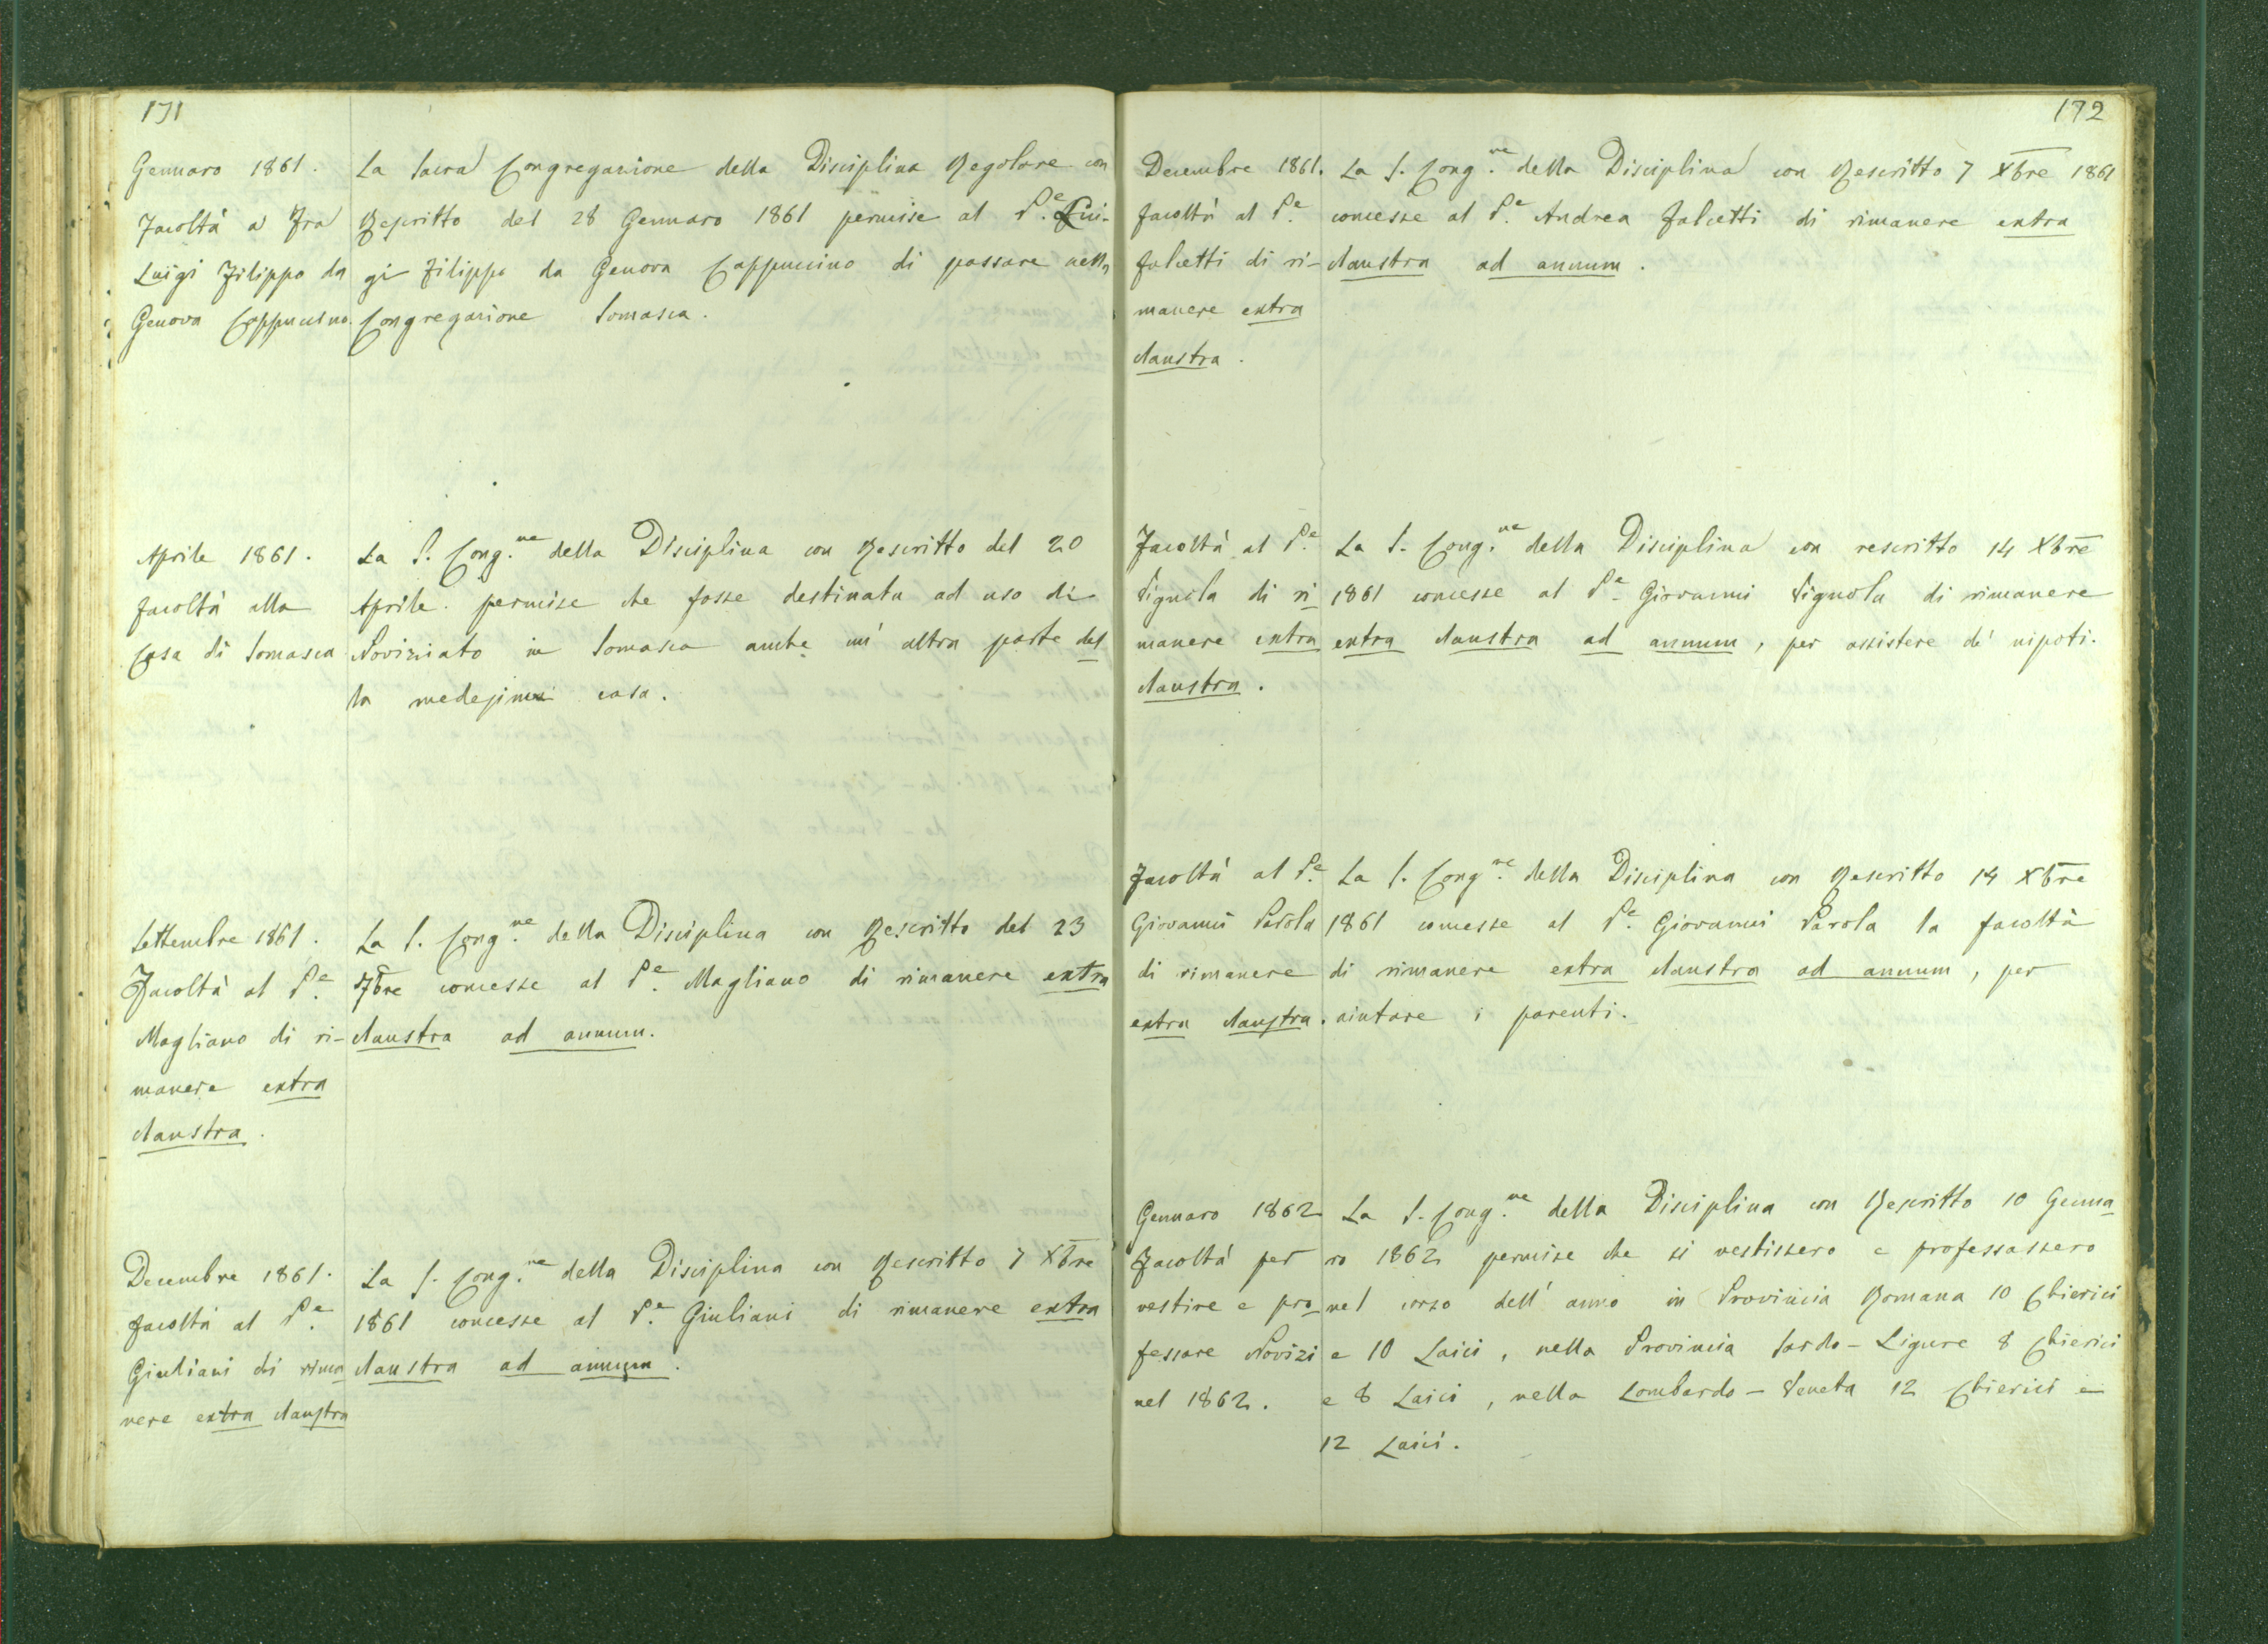 171
Gennaro 1861.
Facoltà a Fra
Luigi Filippo da
Genova Cappucino.
La Sacra Congregazione della Disciplina Regolare con
Rescritto del 28 Gennaro 1861 permise al P.e Lui-
gi Filippo da Genova Cappuccino di passare nella
Congregazione Somasca.
Aprile 1861.
facoltà alla
Casa di Somasca
La S. Cong.ne della Disciplina con Rescritto del 20
Aprile. permise che fosse destinata ad uso di
Noviziato in Somasca anche un' altra parte del
la medesima casa.
Settembre 1861.
Facoltà al P.e
Magliano di ri-
manere extra
claustra.
La S. Cong.ne della Disciplina con Rescritto del 23
7bre concesse al P.e Magliano di rimanere extra
claustra ad annum.
Decembre 1861.
facoltà al P.e
Giuliani di rima
nere extra claustra
La S. Cong.ne della Disciplina con Rescritto 7 Xbre
1861 concesse al P.e Giuliani di rimanere extra
claustra ad annum.
172
Decembre 1861.
facoltà al P.e
Falcetti di ri-
manere extra
claustra.
La S. Cong.ne della Disciplina con Rescritto 7 Xbre 1861
concesse al P.e Andrea Falcetti di rimanere extra
claustra ad annum.
Facoltà al P.e
Vignola di ri-
manere extra
claustra.
La S. Cong.ne della Disciplina con rescritto 14 Xbre
1861 concesse al P.e Giovanni Vignola di rimanere
extra claustra ad annum, per assistere de' nipoti.
Facoltà al P.e
Giovanni Parola
di rimanere
extra claustra.
La S. Cong.ne della Disciplina con Rescritto 14 Xbre
1861 concesse al P.e Giovanni Parola la facoltà
di rimanere extra claustra ad annum, per
aiutare i parenti.
Gennaro 1862
Facoltà per
vestire e pro-
fessare Novizi
nel 1862.
La S. Cong.ne della Disciplina con Rescritto 10 Genna
ro 1862 permise che si vestissero e professassero
nel corso dell' anno in Provincia Romana 10 Chierici
e 10 Laici, nella Provincia Sardo-Ligure 8 Chierici
e 8 Laici, nella Lombardo-Veneta 12 Chierici e
12 Laici.